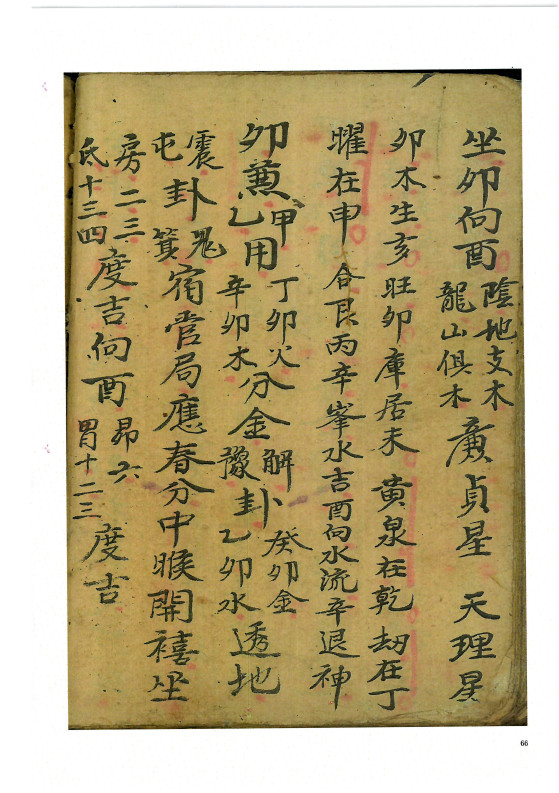 坐卯向酉 陰地支木 龍山俱木 廉貞星 天理星
卯木生亥旺卯庫居未 黄泉在乾 劫在丁
曜在申 合艮丙辛峯水吉酉向水流辛退神
卯兼甲乙用 丁卯火 辛卯木 分金 解豫卦 癸卯金 乙卯水 透地
震屯卦 箕宿管局應春分中候開禧坐
房二三 氐十三四 度吉向酉 昴六 胃十二三 度吉
66